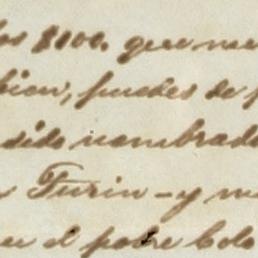 los $100. que me
bien, puedes de
sido nombrado
Turin - y
el pobre